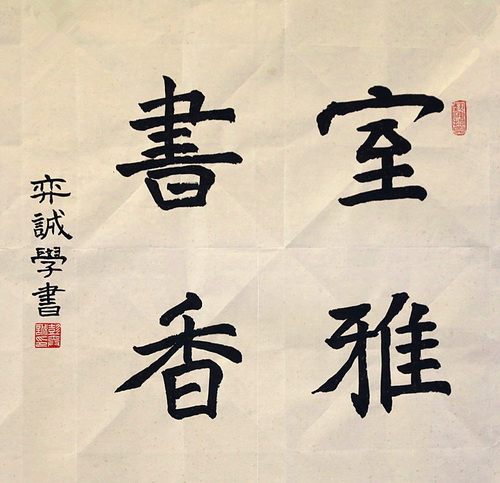 室雅
書香
弈誠學書